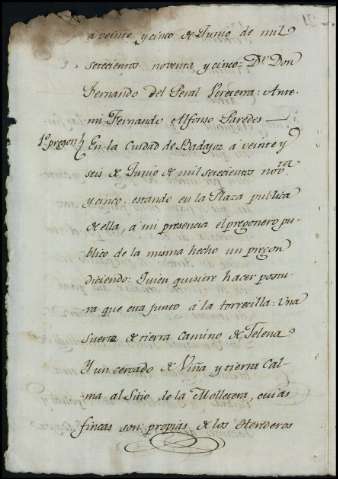 a veinte y cinco de Junio de mil
setecientos noventa y cinco: Dn. Don
Fernando del Peral Pereyera: Ante
mi Fernando Alfonso Paredes
1er pregon En la Ciudad de Badajoz a veinte y
seis de Junio de mil setecientos novta.
y cinco, estando en la Plaza publica
de ella, a mi presencia el pregonero pu
blico de la misma hecho un pregon
diciendo: Quien quisiere hacer postu
ra que eva junto á la torrecilla: Una
suerte de tierra camino de Telena
Y un cercado de Viña y tierra Cal
ma al Sitio de la Mollerera, cuias
fincas son propias de los Herederos